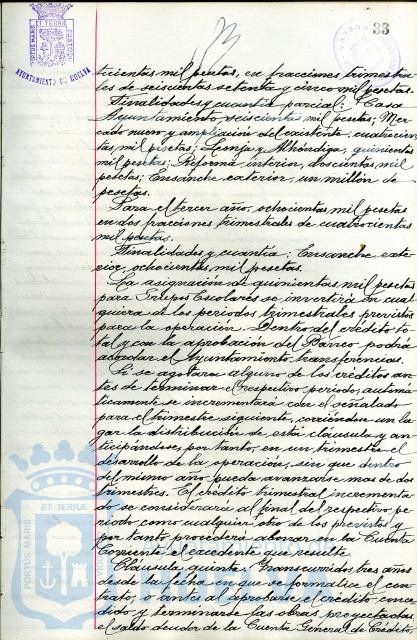 33
PORTUS MARIS ET TERRÆ CUSTODI
AYUNTAMIENTO DE HUELVA
ticientas mil pesetas, en fracciones trimestra-
les de seiscientas setenta y cinco mil pesetas.
Finalidades y cuantía parcial: Casa
Ayuntamiento, seiscientas mil pesetas; Mer-
cado nuevo y ampliación del existente, cuatrocien-
tas mil pesetas; Lonja y Alhóndiga, quinientas
mil pesetas; Reforma interior, doscientas mil
pesetas; Ensanche exterior, un millón de
pesetas.
Para el tercer año, ochocientas mil pesetas
en dos fracciones trimestrales de cuatrocientas
mil pesetas.
Finalidades y cuantía: Ensanche exte-
rior, ochocientas mil pesetas.
La asignación de quinientas mil pesetas
para Grupos Escolares se invertirá en cual-
quiera de los periodos trimestrales previstos
para la operación. Dentro del crédito to-
tal y con la aprobación del Banco podrá
acordar el Ayuntamiento transferencias.
Si se agotara alguno de los créditos an-
tes de terminar el respectivo periodo, automá-
ticamente se incrementará con el señalado
para el trimestre siguiente, corriéndose un lu-
gar la distribución de esta cláusula y an-
ticipándose, por tanto, en un trimestre el
desarrollo de la operación, sin que dentro
del mismo año pueda avanzarse mas de dos
trimestres. El crédito trimestral incrementa-
do se considerará al final del respectivo pe-
riodo como cualquier otro de los previstos y
por tanto procederá abonar en la Cuenta
Corriente el excedente que resulte.
Cláusula quinta: Transcurridos tres años
desde la fecha en que se formalice el con-
trato, o antes al aprobarse el crédito conce-
dido y terminarse las obras proyectadas,
el saldo deudor de la Cuenta General de Crédito,
PORTUS MARIS ET TERRÆ